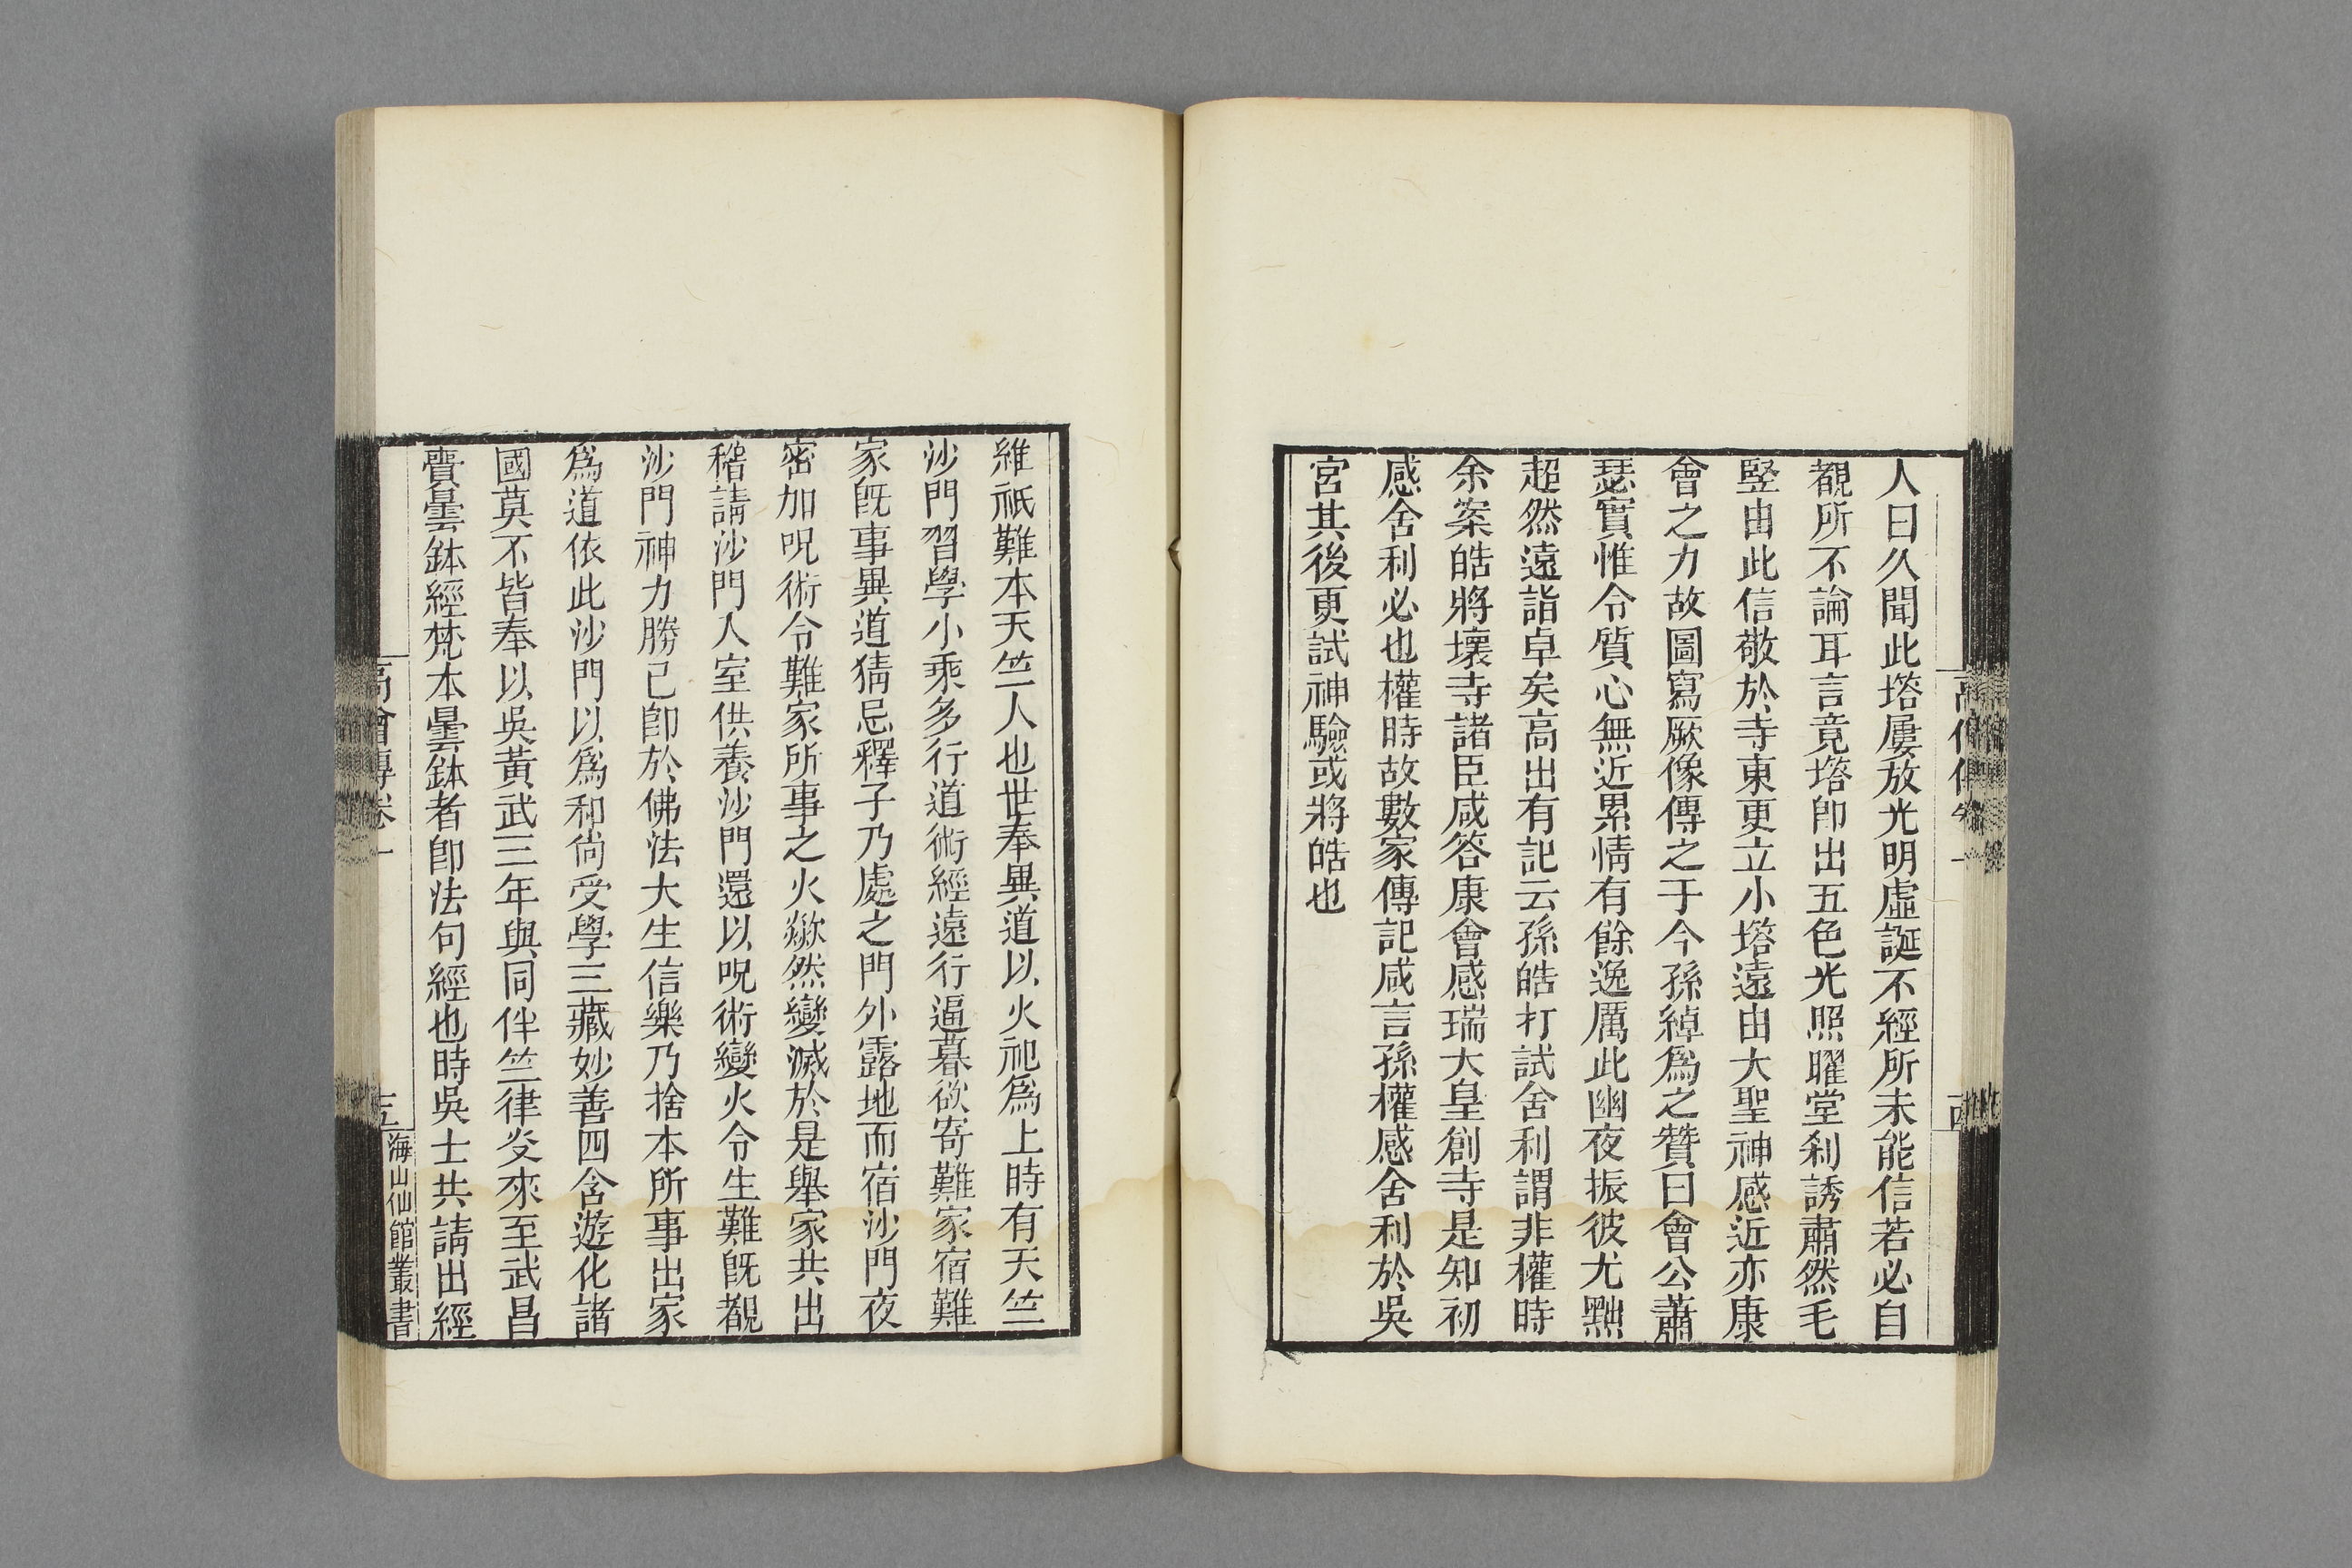 人曰久聞此塔屢放光明虛誕不經所未能信若必自
覩所不論耳言竟塔卽出五色光照曜堂刹誘肅然毛
竪由此信敬於寺東更立小塔遠由大聖神感近亦康
會之力故圖寫厥像傳之于今孫綽爲之贊曰會公蕭
瑟實惟令質心無近累情有餘逸厲此幽夜振彼尤黜
超然遠詣卓矣高出有記云孫皓打試舍利謂非權時
余案皓將壞寺諸臣咸答康會感瑞大皇創寺是知初
感舍利必也權時故數家傳記咸言孫權感舍利於吳
宮其後更試神驗或將皓也
維祇難本天竺人也世奉異道以火祀爲上時有天竺
沙門習學小乘多行道術經遠行逼暮欲寄難家宿難
家旣事異道猜忌釋子乃處之門外露地而宿沙門夜
密加呪術令難家所事之火歘然變滅於是舉家共出
稽請沙門入室供養沙門還以呪術變火令生難旣覩
沙門神力勝己卽於佛法大生信樂乃捨本所事出家
爲道依此沙門以爲和尙受學三藏妙善四含遊化諸
國莫不皆奉以吳黃武三年與同伴竺律炎來至武昌
賷曇鉢經梵本曇鉢者卽法句經也時吳士共請出經
高僧傳卷一
海山仙館叢書